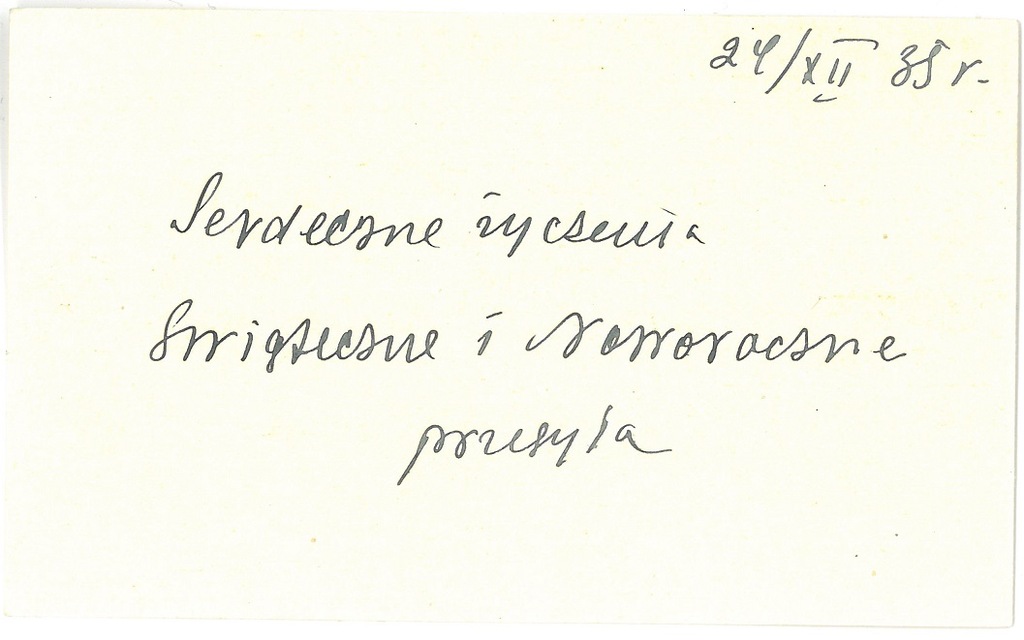 24/XII 35 r.
Serdeczne życzenia
Świąteczne i Noworoczne
przesyła